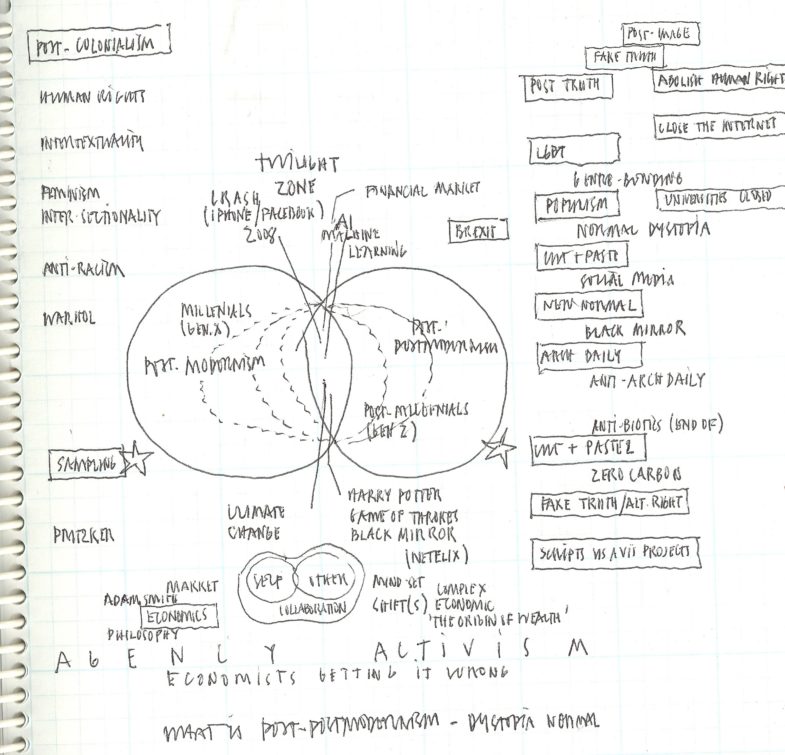 POST-COLONIALISM
HUMAN RIGHTS
INTERTEXTUALITY
FEMINISM
INTER-SECTIONALITY
ANTI-RACISM
WARHOL
SAMPLING
PRITZKER
TWILIGHT
ZONE
CRASH
(IPHONE/FACEBOOK)
2008
FINANCIAL MARKET
AI
MACHINE
LEARNING
BREXIT
MILLENIALS
(GEN.X)
POST-MODERNISM
POST-
POSTMODERNISM
POST-MILLENIALS
(GEN Z)
CLIMATE
CHANGE
HARRY POTTER
GAME OF THRONES
BLACK MIRROR
(NETFLIX)
SELF
OTHER
COLLABORATION
MIND-SET
SHIFT(S)
COMPLEX
ECONOMIC
'THE ORIGIN OF WEALTH'
MARKET
ADAM SMITH
ECONOMICS
PHILOSOPHY
POST-IMAGE
FAKE TRUTH
POST TRUTH
ABOLISH HUMAN RIGHT
CLOSE THE INTERNET
LGBT
GENRE-BENDING
POPULISM
UNIVERSITIES CLOSED
NORMAL DYSTOPIA
CUT + PASTE
SOCIAL MEDIA
NEW NORMAL
BLACK MIRROR
ARCH DAILY
ANTI-ARCH DAILY
ANTI-BIOTICS (END OF)
CUT + PASTE 2
ZERO CARBON
FAKE TRUTH/ALT.RIGHT
SCRIPTS VS AVII PROJECTS
AGENCY ACTIVISM
ECONOMISTS GETTING IT WRONG
WHAT IS POST-POSTMODERNISM - DYSTOPIA NORMAL